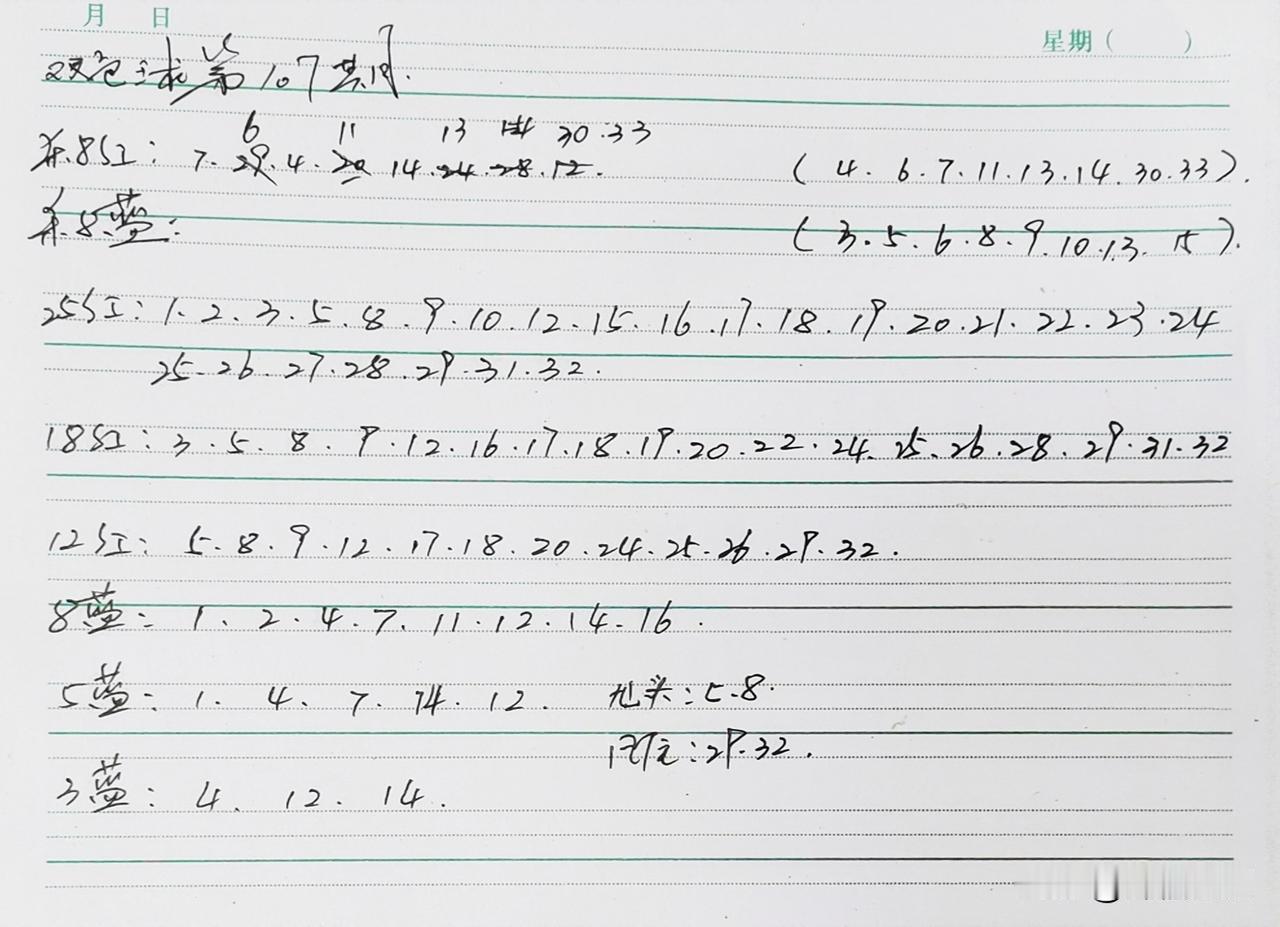 月 日
星期( )
双色球第107期.
6 11 13 30.33
杀8红: 7. 29. 4. 20 14. 24. 28. 12. (4. 6. 7. 11. 13. 14. 30. 33).
杀8蓝: (3. 5. 6. 8. 9. 10. 13. 15).
25红: 1. 2. 3. 5. 8. 9. 10. 12. 15. 16. 17. 18. 19. 20. 21. 22. 23. 24
25. 26. 27. 28. 29. 31. 32.
18红: 3. 5. 8. 9. 12. 16. 17. 18. 19. 20. 22. 24. 25. 26. 28. 29. 31. 32
12红: 5. 8. 9. 12. 17. 18. 20. 24. 25. 26. 29. 32.
8蓝: 1. 2. 4. 7. 11. 12. 14. 16.
5蓝: 1. 4. 7. 14. 12. 龙头: 5. 8.
凤尾: 29. 32.
3蓝: 4. 12. 14.